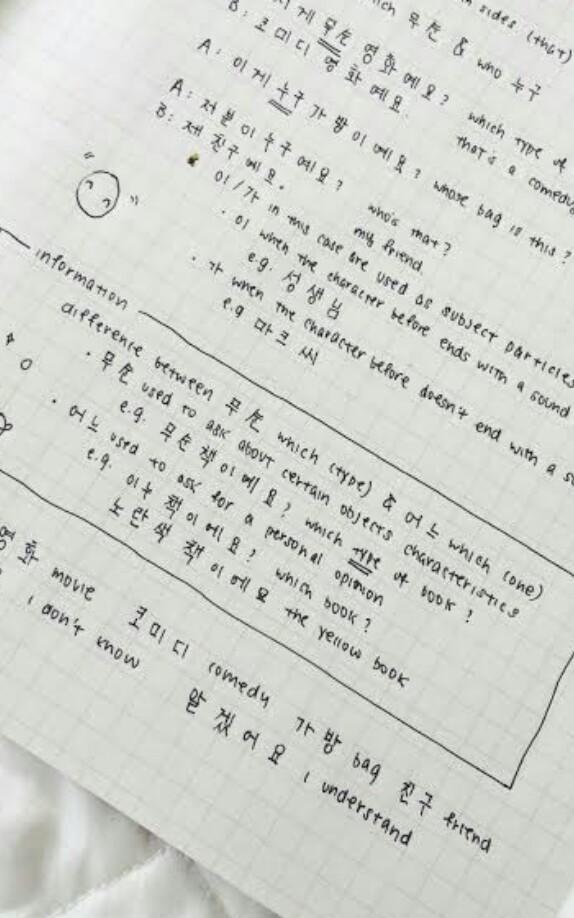 n sides (that)
ich 무슨 & who 누구
이게 무슨 영화예요? which type of
B: 코미디 영화예요. that's a comedy
A: 이게 누구 가방이예요? whose bag is this?
A: 저분이 누구예요? who's that?
B: 제 친구예요. my friend.
이/가 in this case are used as subject particles
· 이 when the character before ends with a sound
e.g. 성생님
· 가 when the character before doesn't end with a s
e.g 마크 씨
information
difference between 무슨 which (type) & 어느 which (one)
· 무슨 used to ask about certain objects characteristics
e.g. 무슨 책이예요? which type of book?
· 어느 used to ask for a personal opinion
e.g. 이누 책이예요? which book?
노란색 책이예요 the yellow book
영화 movie 코미디 comedy 가방 bag 친구 friend
i don't know 알겠어요 i understand